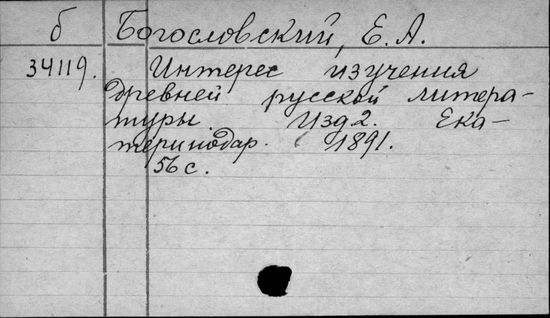 б Богословский, Е. А.
34119. Интерес изучения
древней русской литера-
туры Изд 2. Ека-
теринодар. 1891.
56 с.